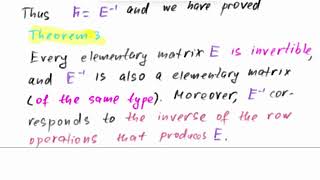 Thus F = E⁻¹ and we have proved
Theorem 3
Every elementary matrix E is invertible,
and E⁻¹ is also a elementary matrix
(of the same type). Moreover, E⁻¹ cor-
responds to the inverse of the row
operations that produces E.